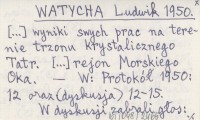 WATYCHA Ludwik 1950.
[...] wyniki swych prac na tere-
nie trzonu krystalicznego
Tatr. [...] rejon Morskiego
Oka. — W: Protokół 1950:
12 oraz (dyskusja) 12-15.
W dyskusji zabrali głos: